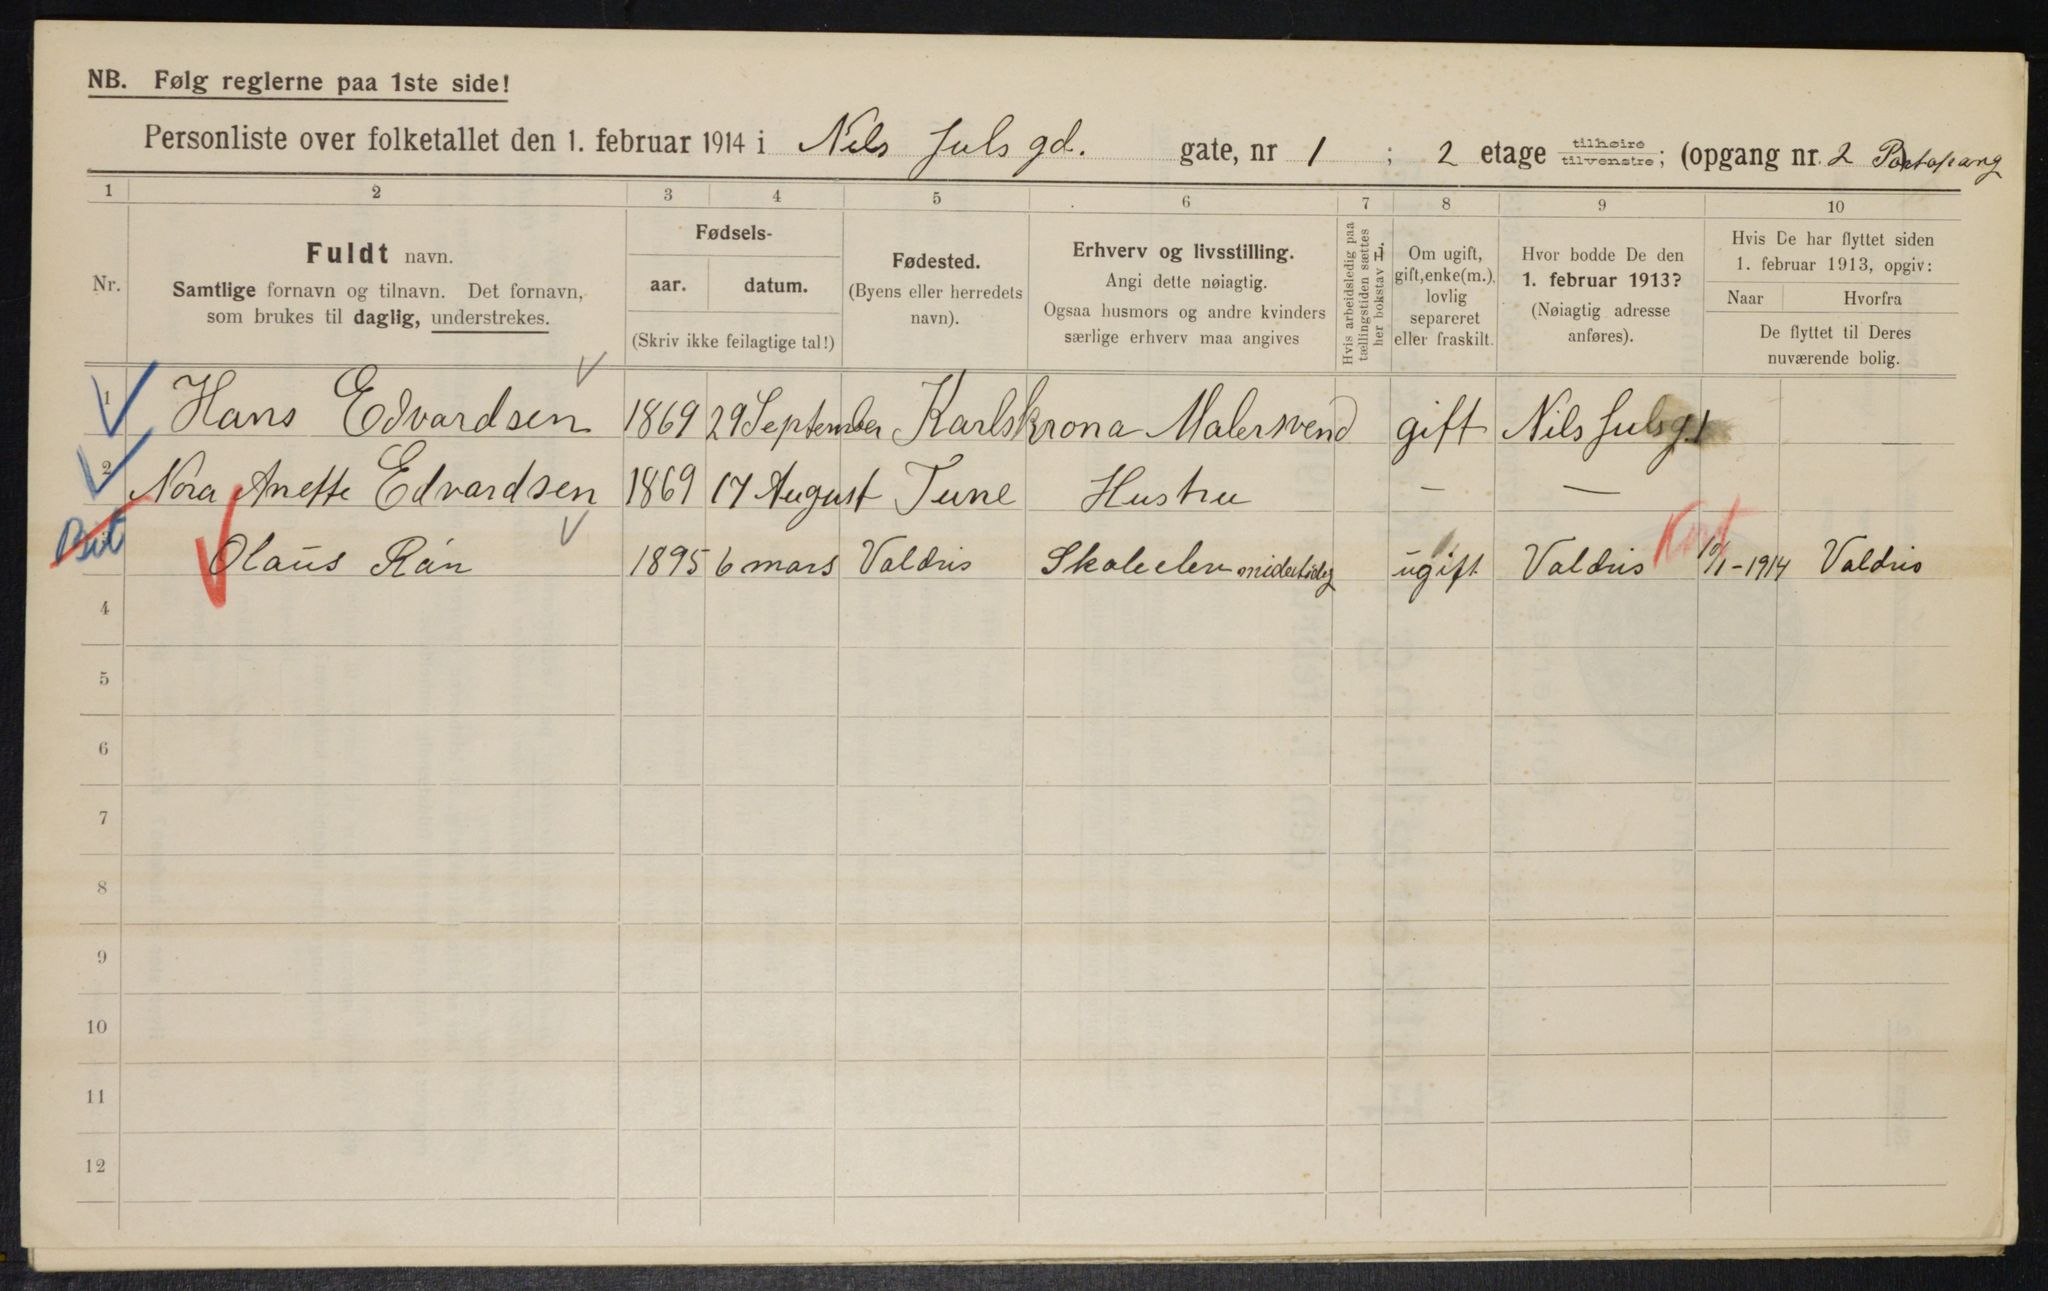 NB. Følg reglerne paa 1ste side!
Personliste over folketallet den 1. februar 1914 i Nils Juls gd. gate, nr 1 ; 2 etage tilhøire tilvenstre; (opgang nr. 2 Portopgang
1 2 3 4 5 6 7 8 9 10
Nr.
Fuldt navn.
Samtlige fornavn og tilnavn. Det fornavn,
som brukes til daglig, understrekes.
Fødsels-
aar. datum.
(Skriv ikke feilagtige tal!)
Fødested.
(Byens eller herredets
navn).
Erhverv og livsstilling.
Angi dette nøiagtig.
Ogsaa husmors og andre kvinders
særlige erhverv maa angives
Hvis arbeidsledig paa
tællingstiden sættes
her bokstav L.
Om ugift,
gift, enke(m.),
lovlig
separeret
eller fraskilt.
Hvor bodde De den
1. februar 1913?
(Nøiagtig adresse
anføres).
Hvis De har flyttet siden
1. februar 1913, opgiv:
Naar Hvorfra
De flyttet til Deres
nuværende bolig.
1 Hans Edvardsen 1869 29 September Karlskrona Malersvend gift Nils Juls g. 1
2 Nora Anette Edvardsen 1869 17 August Tune Hustru — —
Olaus Rán 1895 6 mars Valdris Skoleelev midertidig ugift Valdris 10/1-1914 Valdris
4
5
6
7
8
9
10
11
12